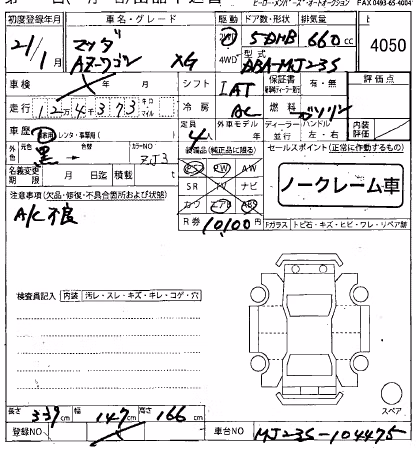 ヒーローメンバーズ・オートオークション FAX 0493-65-4004
初度登録年月 車名・グレード 駆動 ドア数・形状 排気量
21/1月 マツダ AZ-ワゴン XG 5DHB 660cc 4050
4WD 型式 DBA-MJ23S
車検 年 月 シフト IAT 保証書 有・無 評価点
走行 12万4千373 キロ マイル 冷房 AC 燃料 ガソリン
車歴 自家用・レンタ・事業用( ) 定員 4人 外車モデル 年 ディーラー 並行 ハンドル 左・右 内装評価
外色 元色 黒 → 色替 カラーNO ZJ3
セールスポイント(正常に作動するもの)
名義変更期限 月 日 迄 積載 t
装備品(純正品に限る)
PS PW AW
SR TV ナビ
カワ エアB ABS
ノークレーム車
注意事項(欠品・修復・不具合箇所および状態)
A/C不良
R券 10,100円
Fガラス トビ石・キズ・ヒビ・ワレ・リペア跡
検査員記入 内装 汚レ・スレ・キズ・キレ・コゲ・穴
スペア
長さ 339cm 幅 147cm 高さ 166cm
登録NO 車台NO MJ23S-104475